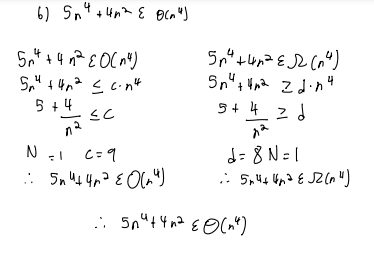 6) 5n⁴ + 4n² ε Θ(n⁴)
5n⁴ + 4n² ε O(n⁴)
5n⁴ + 4n² ≤ c·n⁴
5 + 4/n² ≤ c
N = 1 c = 9
∴ 5n⁴ + 4n² ε O(n⁴)
5n⁴ + 4n² ε Ω(n⁴)
5n⁴ + 4n² ≥ d·n⁴
5 + 4/n² ≥ d
d = 8 N = 1
∴ 5n⁴ + 4n² ε Ω(n⁴)
∴ 5n⁴ + 4n² ε Θ(n⁴)